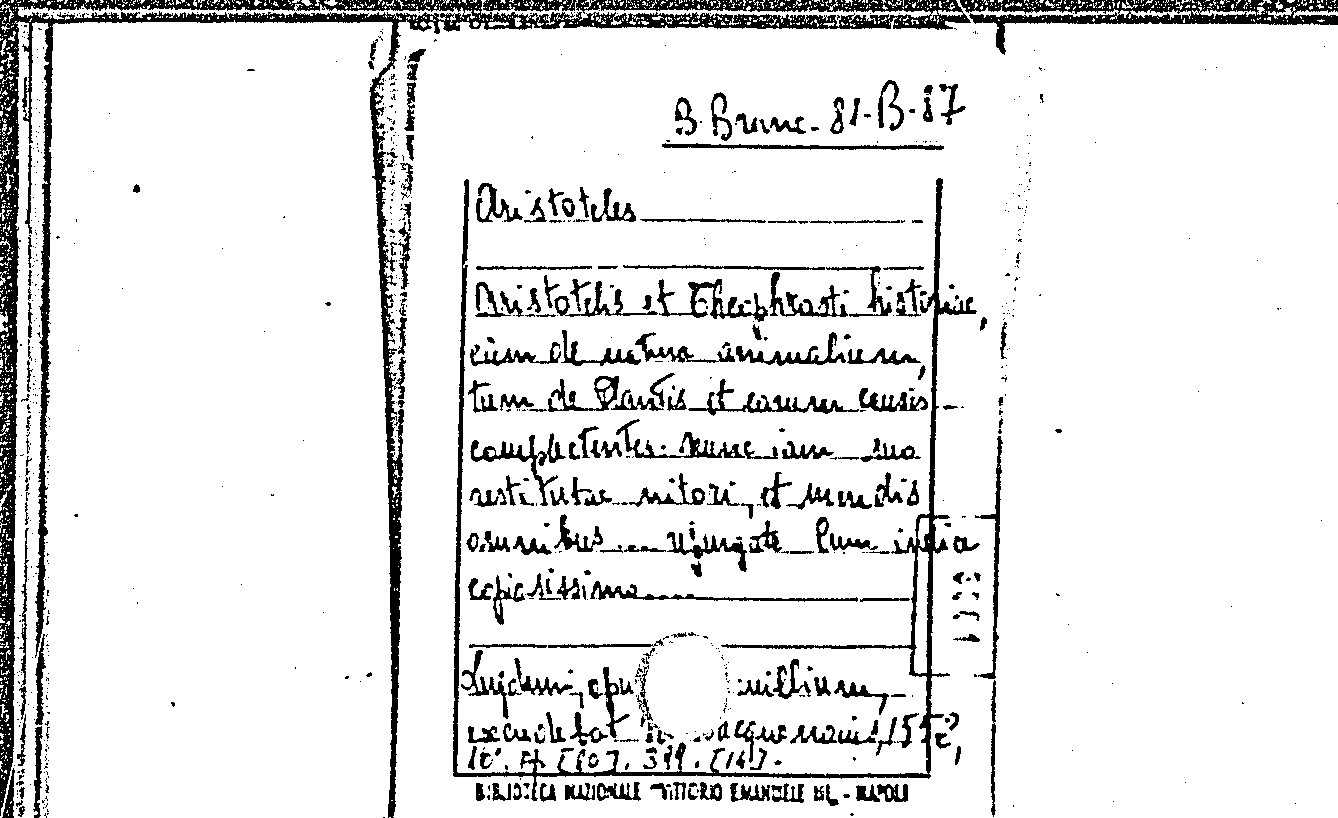 B. Branc. 81-B-87
Aristoteles
Aristotelis et Theophrasti historiae,
cum de natura animalium,
tum de Plantis et earum causis
complectentes. Nunc iam suo
restitutae nitori, et mendis
omnibus ... repurgatе Cum indice
copiosissimo....
Lugduni, apu
excudebat
16°. pp. [60]. 399. [14].
BIBLIOTECA NAZIONALE "VITTORIO EMANUELE III" - NAPOLI